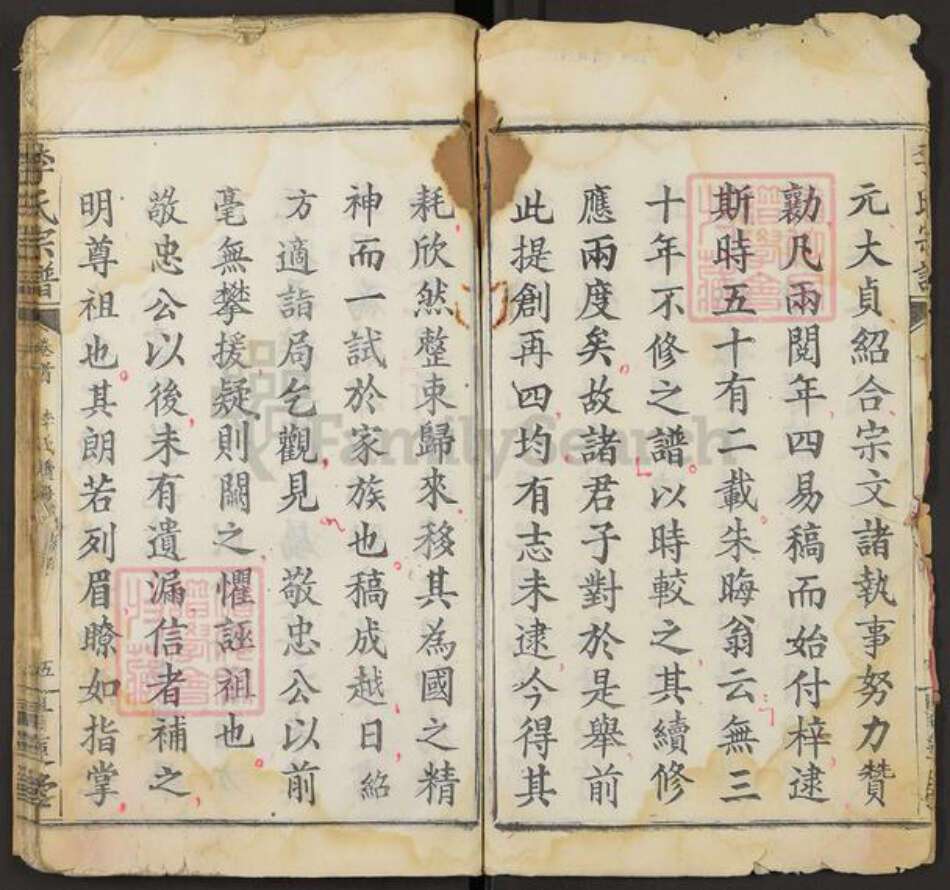 元大貞紹合宗文諸執事努力贊
勷凡兩閱年四易稿而始付梓逮
斯時五十有二載朱晦翁云無三
十年不修之譜以時較之其續修
應兩度矣故諸君子對於是舉前
此提創再四均有志未逮今得其
耗欣然整束歸來移其為國之精
神而一試於家族也稿成越日紹
方適詣局乞觀見敬忠公以前
毫無攀援疑則闕之懼誣祖也
敬忠公以後未有遺漏信者補之
明尊祖也其朗若列眉瞭如指掌
李氏宗譜
卷首
五
FamilySearch